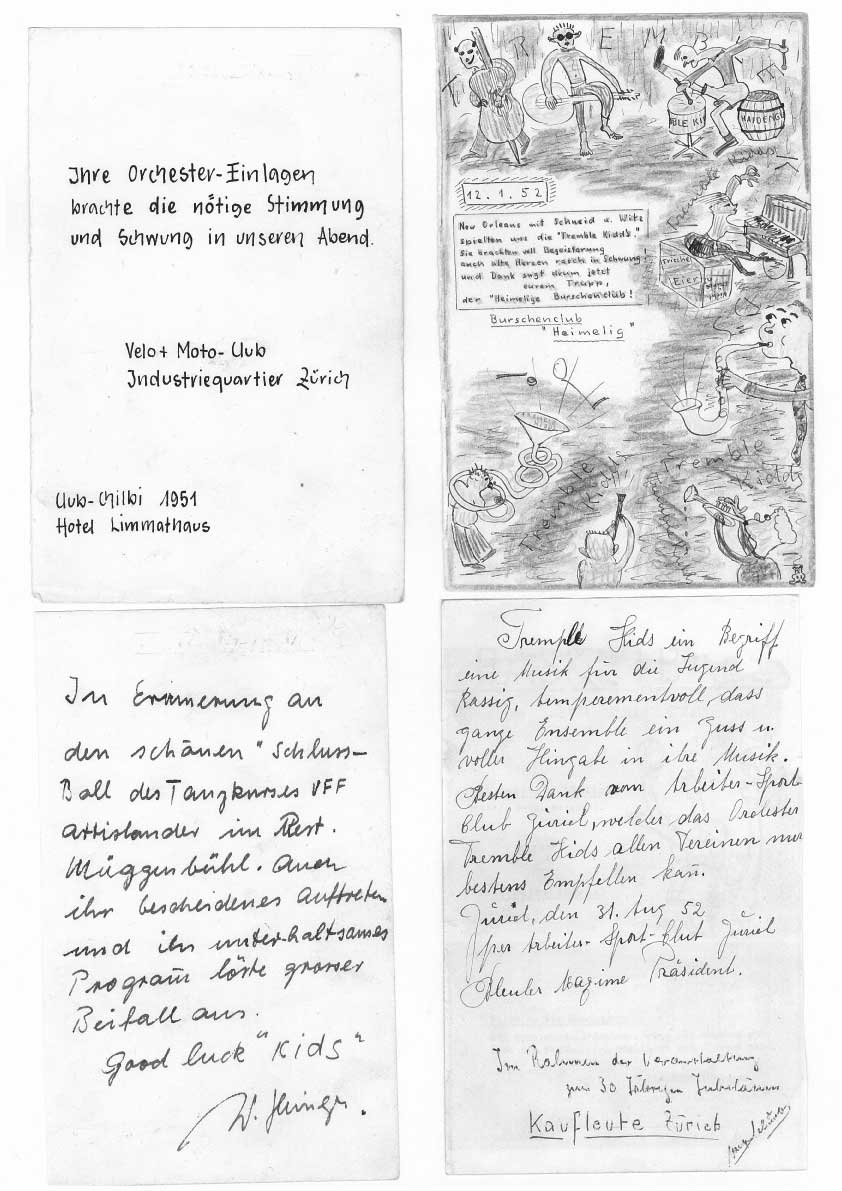 Ihre Orchester-Einlagen
brachte die nötige Stimmung
und Schwung in unseren Abend.
Velo + Moto-Club
Industriequartier Zürich
Club-Chilbi 1951
Hotel Limmathaus
TREMBLE
BLE KI
HAIDENGU
12.1.52
New Orleans mit Schneid u. Witz
spielten uns die "Tremble Kidd's."
Sie brachten voll Begeisterung
auch alte Herzen rasch in Schwung!
und Dank sagt drum jetzt
eurem Trupp,
der "Heimelige Burschenclub!
Burschenclub
"Heimelig"
Frische
Eier
Tremble
Kidd's
Tremble
Kidds
In Erinnerung an
den schönen "Schluss-
Ball des Tanzkurses VFF
im Rest.
Müggenbühl. Auch
ihr bescheidenes Auftreten
und ihr unterhaltsames
Program̄ löste grosser
Beifall aus.
Good luck "Kids"
Tremble Kids ein Begriff
eine Musik für die Jugend
Rassig, temperementvoll, dass
ganze Ensemble ein Guss u.
voller Hingabe in ihre Musik.
Besten Dank vom Arbeiter-Sport
Club Zürich, welcher das Orchester
Tremble Kids allen Vereinen nur
bestens Empfellen kan̄.
Zürich, den 31. Aug 52
per Arbeiter-Sport-Club Zürich
Präsident.
Im Rahmen der Veranstaltung
zum 30 Jährigen Jubiläum
Kaufleute Zürich